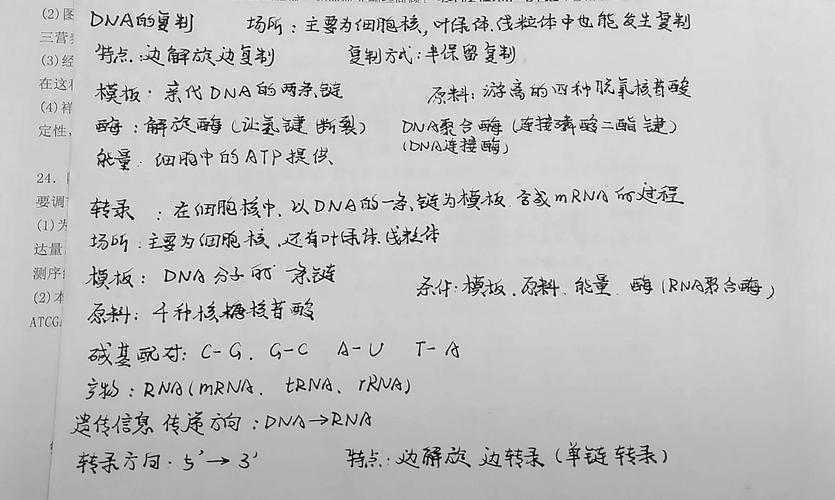 (2)图
三营
(3)经
在这
(4)样
定性,
24.
要调
(1)为
达量
测序
(2)本
ATCGA
DNA的复制 场所:主要为细胞核,叶绿体、线粒体中也能发生复制
特点:边解旋边复制 复制方式:半保留复制
模板:亲代DNA的两条链 原料:游离的四种脱氧核苷酸
酶:解旋酶(让氢键断裂) DNA聚合酶(连接磷酸二酯键)
(DNA连接酶)
能量:细胞中的ATP提供、
转录:在细胞核中,以DNA的一条链为模板 合成mRNA的过程
场所:主要为细胞核,还有叶绿体、线粒体
模板:DNA分子的一条链 条件:模板、原料、能量、酶(RNA聚合酶)
原料:4种核糖核苷酸
碱基配对:C-G、G-C A-U T-A
产物:RNA(mRNA、tRNA、rRNA)
遗传信息传递方向:DNA→RNA
转录方向:5'→3' 特点:边解旋边转录(单链转录)